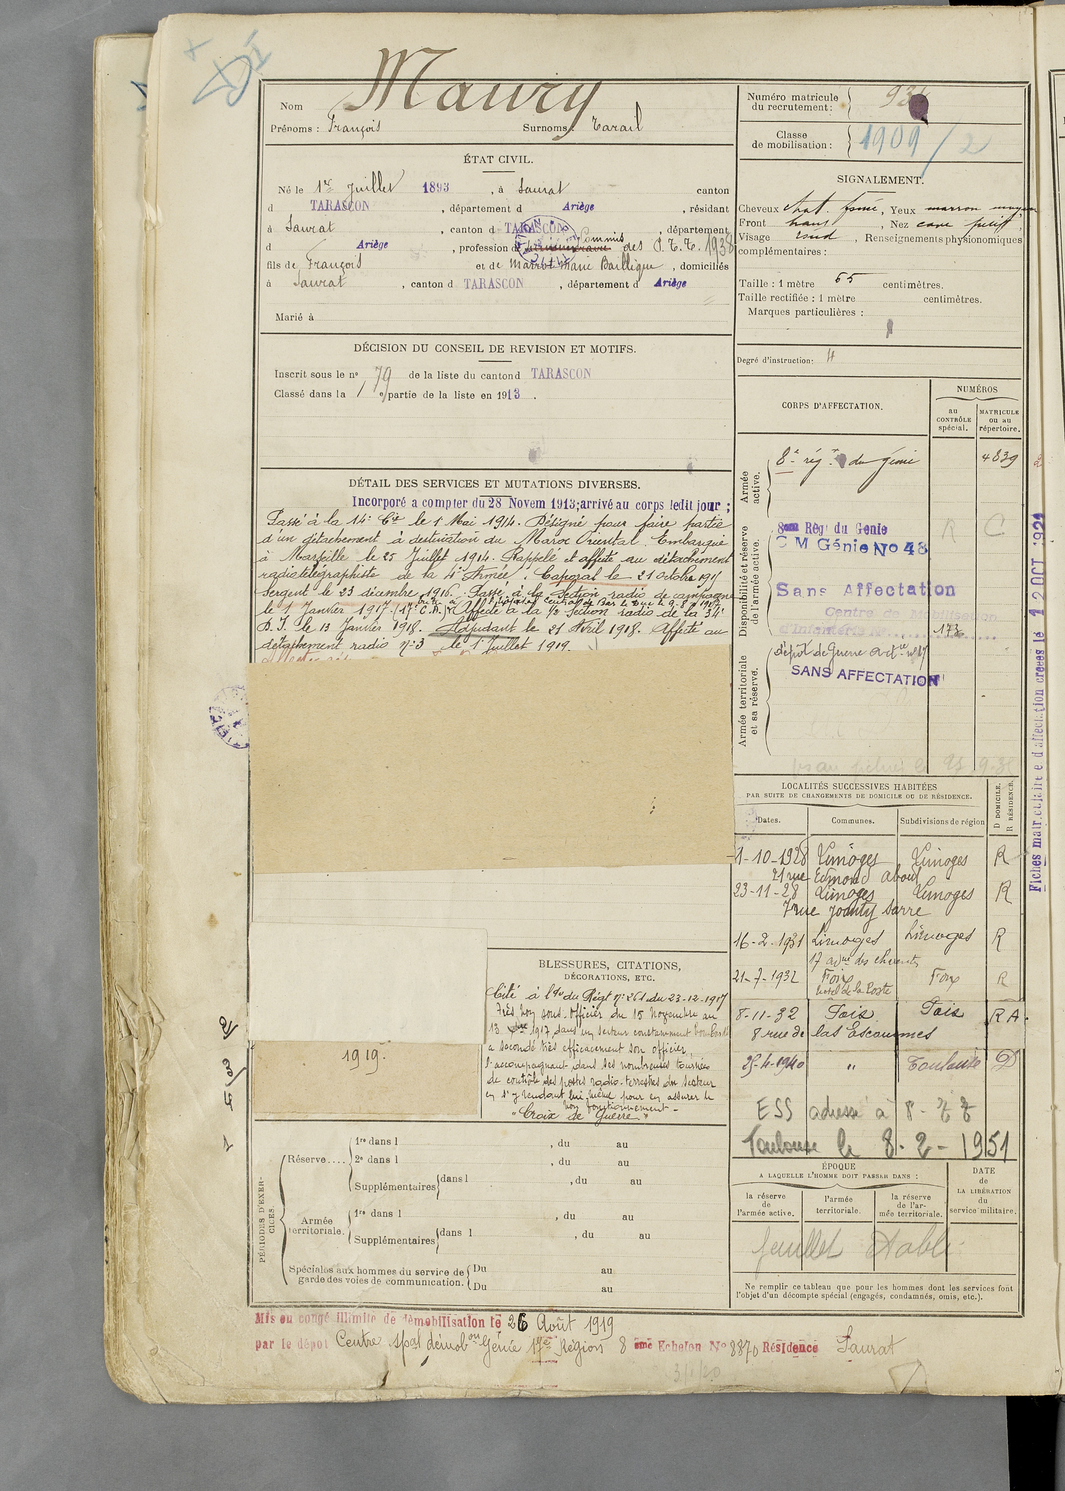 Nom Maury
Prénoms : François Surnoms : Tarail
ÉTAT CIVIL.
Né le 1er Juillet 1893, à Saurat canton
d TARASCON, département d Ariège, résidant
à Saurat, canton d TARASCON, département
d Ariège, profession de Commis des P.T.T. 1938
fils de François et de Marie Bailligue, domiciliés
à Saurat, canton d TARASCON, département d Ariège
Marié à
DÉCISION DU CONSEIL DE REVISION ET MOTIFS.
Inscrit sous le no 79 de la liste du canton d TARASCON
Classé dans la 1e partie de la liste en 1913.
DÉTAIL DES SERVICES ET MUTATIONS DIVERSES.
Incorporé a compter du 28 Novem 1913; arrivé au corps ledit jour ;
Passé à la 14e Cie le 1 Mai 1914. Désigné pour faire partie
d'un détachement à destination du Maroc Oriental. Embarqué
à Marseille le 25 Juillet 1914. Rappelé et affecté au détachement
radiotélégraphiste de la 4e Armée. Caporal le 21 Octobre 1915
Sergent le 23 décembre 1916. Passé à la Section radio de campagne
le 1 Janvier 1917. Affecté à la Section radio de la 34e
D.I. le 13 Janvier 1918. Adjudant le 21 Avril 1918. Affecté au
détachement radio no 3 le 1er Juillet 1919.
1919.
BLESSURES, CITATIONS,
DÉCORATIONS, ETC.
Cité à l'de du Régt no 261 du 23-12-1917
Très bon sous-officier du 15 Novembre au
13 1917 dans un secteur constamment bombardé
a secondé très efficacement son officier,
l'accompagnant dans ses nombreuses tournées
de contrôle des postes radio-terrestres du secteur
en s'y rendant lui-même pour en assurer le
bon fonctionnement -
"Croix de Guerre"
PÉRIODES D'EXERCICES.
Réserve.... 1re dans l , du au
2e dans l , du au
Supplémentaires dans l , du au
Armée territoriale. 1re dans l , du au
Supplémentaires dans l , du au
Spéciales aux hommes du service de garde des voies de communication. Du au
Du au
Mis en congé illimité de démobilisation le 26 Août 1919
par le dépôt Centre spal démobon Génie 17e Région 8 ème Echelon No 8870 Résidence Saurat
Numéro matricule du recrutement :
Classe de mobilisation : 1909/2
SIGNALEMENT.
Cheveux chat. foncé, Yeux marron moyen
Front haut, Nez cave petit
Visage rond, Renseignements physionomiques
complémentaires :
Taille : 1 mètre 65 centimètres.
Taille rectifiée : 1 mètre centimètres.
Marques particulières :
Degré d'instruction :
CORPS D'AFFECTATION.
NUMÉROS
au CONTRÔLE spécial.
MATRICULE ou au répertoire.
Armée active.
8e régt du Génie 4839
Disponibilité et réserve de l'armée active.
8ème Régt du Génie
C M Génie No 48 R C
Sans Affectation
Centre de Mobilisation
d'Infanterie No 173
Armée territoriale et sa réserve.
dépôt de Guerre
SANS AFFECTATION
Fiches matriculaire et d'affectation créées le 12 OCT 1921
LOCALITÉS SUCCESSIVES HABITÉES
PAR SUITE DE CHANGEMENTS DE DOMICILE OU DE RÉSIDENCE.
Dates. Communes. Subdivisions de région D DOMICILE. R RÉSIDENCE.
1-10-1928 Limoges Limoges R
21 rue Edmond About
23-11-28 Limoges Limoges R
7 rue Jounty Sarre
16-2-1931 Limoges Limoges R
17 avue des
21-7-1932 Foix Foix R
hôtel de la Poste
8-11-32 Foix Foix RA.
8 rue de las Escoumes
25-4-1940 " Toulouse D
ESS adresse à
Toulouse le 8-2-1951
ÉPOQUE
A LAQUELLE L'HOMME DOIT PASSER DANS :
la réserve de l'armée active.
l'armée territoriale.
la réserve de l'armée territoriale.
DATE de LA LIBÉRATION du service militaire.
feuillet établi
Ne remplir ce tableau que pour les hommes dont les services font
l'objet d'un décompte spécial (engagés, condamnés, omis, etc.).